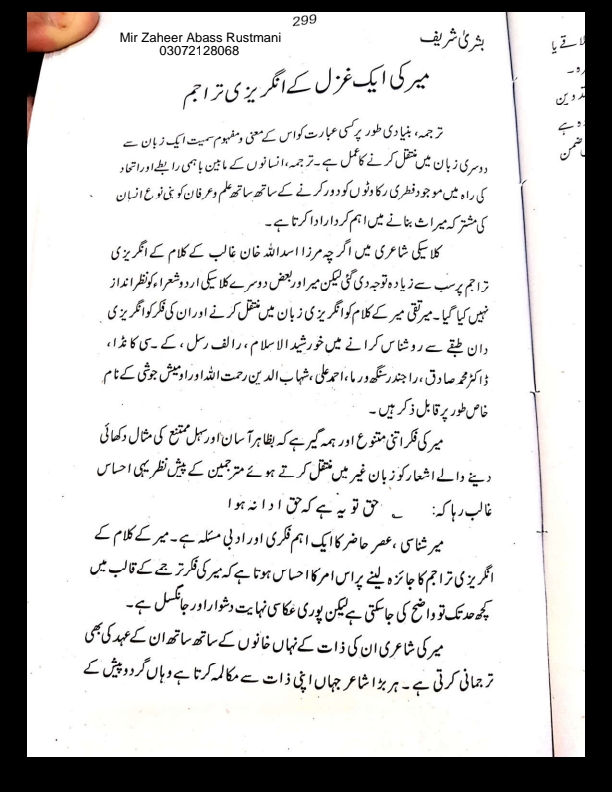 299
Mir Zaheer Abass Rustmani
03072128068
بشریٰ شریف
میر کی ایک غزل کے انگریزی تراجم
ترجمہ، بنیادی طور پر کسی عبارت کو اس کے معنی و مفہوم سمیت ایک زبان سے
دوسری زبان میں منتقل کرنے کا عمل ہے۔ ترجمہ، انسانوں کے مابین باہمی رابطے اور اتحاد
کی راہ میں موجود فطری رکاوٹوں کو دور کرنے کے ساتھ ساتھ علم و عرفان کو بنی نوع انسان
کی مشترکہ میراث بنانے میں اہم کردار ادا کرتا ہے۔
کلاسیکی شاعری میں اگرچہ مرزا اسد اللہ خان غالب کے کلام کے انگریزی
تراجم پر سب سے زیادہ توجہ دی گئی لیکن میر اور بعض دوسرے کلاسیکی اردو شعراء کو نظر انداز
نہیں کیا گیا۔ میر تقی میر کے کلام کو انگریزی زبان میں منتقل کرنے اور ان کی فکر کو انگریزی
دان طبقے سے روشناس کرانے میں خورشید الاسلام، رالف رسل، کے۔ سی کانڈا،
ڈاکٹر محمد صادق، راجندر سنگھ ورما، احمد علی، شہاب الدین رحمت اللہ اور اومیش جوشی کے نام
خاص طور پر قابل ذکر ہیں۔
میر کی فکر اتنی متنوع اور ہمہ گیر ہے کہ بظاہر آسان اور سہل ممتنع کی مثال دکھائی
دینے والے اشعار کو زبان غیر میں منتقل کرتے ہوئے مترجمین کے پیش نظر یہی احساس
غالب رہا کہ: ؎ حق تو یہ ہے کہ حق ادا نہ ہوا
میر شناسی، عصر حاضر کا ایک اہم فکری اور ادبی مسئلہ ہے۔ میر کے کلام کے
انگریزی تراجم کا جائزہ لینے پر اس امر کا احساس ہوتا ہے کہ میر کی فکر ترجمے کے قالب میں
کچھ حد تک تو واضح کی جا سکتی ہے لیکن پوری عکاسی نہایت دشوار اور جانگسل ہے۔
میر کی شاعری ان کی ذات کے نہاں خانوں کے ساتھ ساتھ ان کے عہد کی بھی
ترجمانی کرتی ہے۔ ہر بڑا شاعر جہاں اپنی ذات سے مکالمہ کرتا ہے وہاں گرد و پیش کے